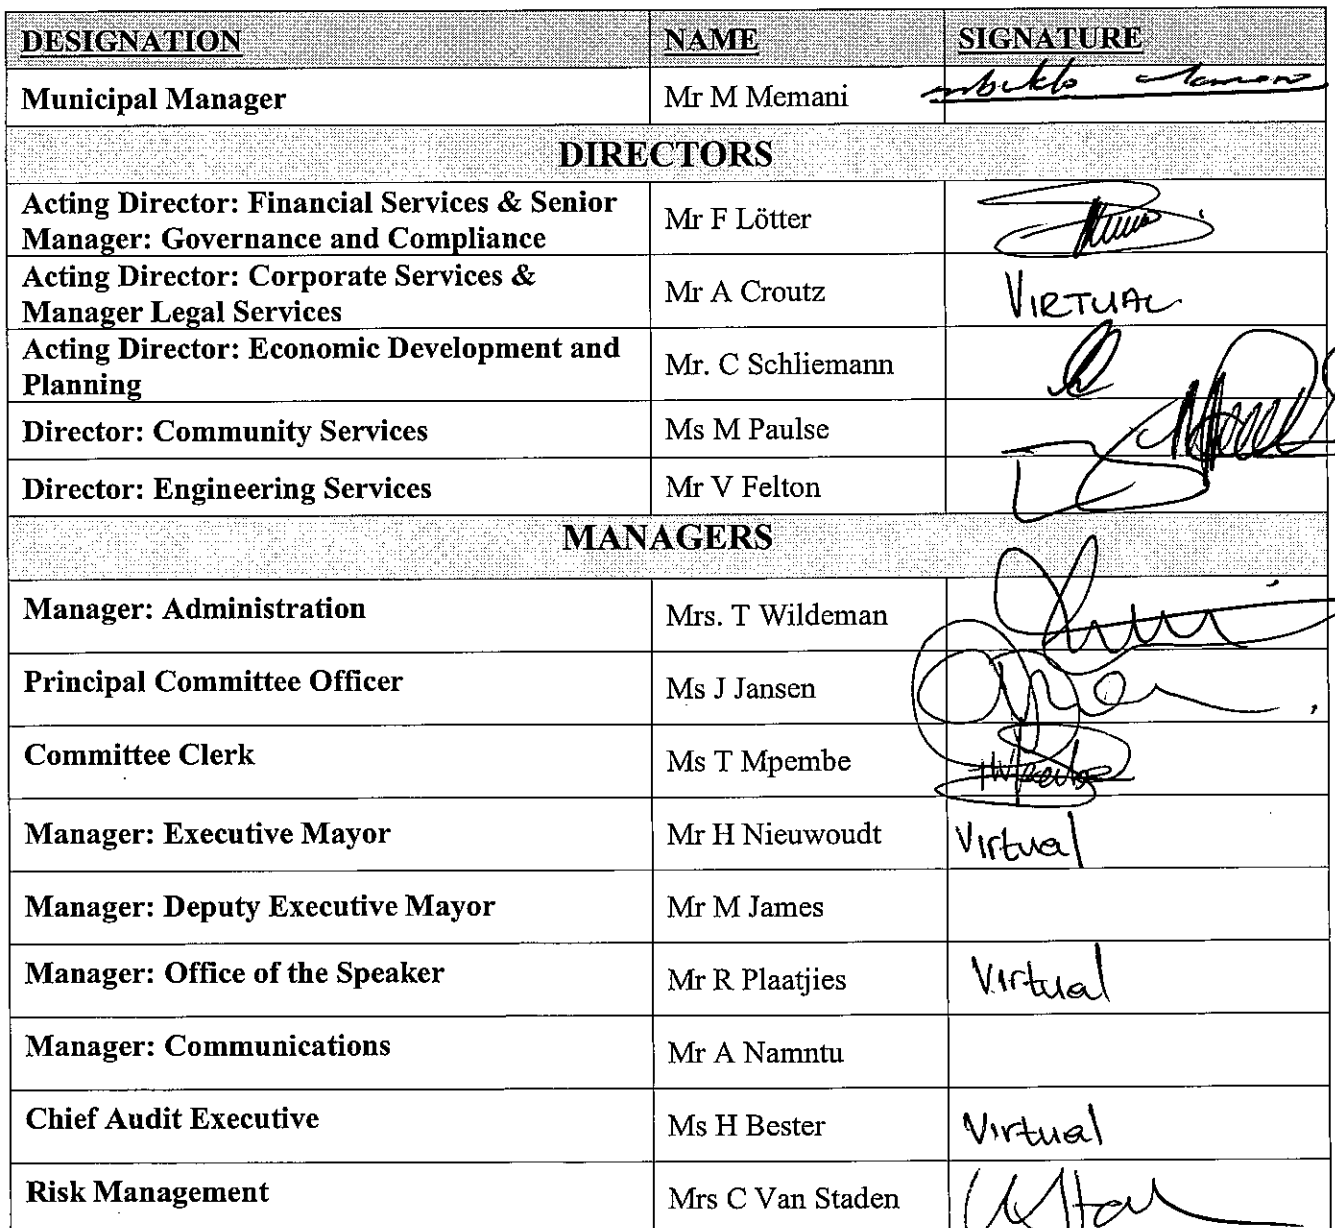 DESIGNATION NAME SIGNATURE
Municipal Manager Mr M Memani
DIRECTORS
Acting Director: Financial Services & Senior
Manager: Governance and Compliance Mr F Lötter
Acting Director: Corporate Services &
Manager Legal Services Mr A Croutz VIRTUAL
Acting Director: Economic Development and
Planning Mr. C Schliemann
Director: Community Services Ms M Paulse
Director: Engineering Services Mr V Felton
MANAGERS
Manager: Administration Mrs. T Wildeman
Principal Committee Officer Ms J Jansen
Committee Clerk Ms T Mpembe
Manager: Executive Mayor Mr H Nieuwoudt Virtual
Manager: Deputy Executive Mayor Mr M James
Manager: Office of the Speaker Mr R Plaatjies Virtual
Manager: Communications Mr A Namntu
Chief Audit Executive Ms H Bester Virtual
Risk Management Mrs C Van Staden